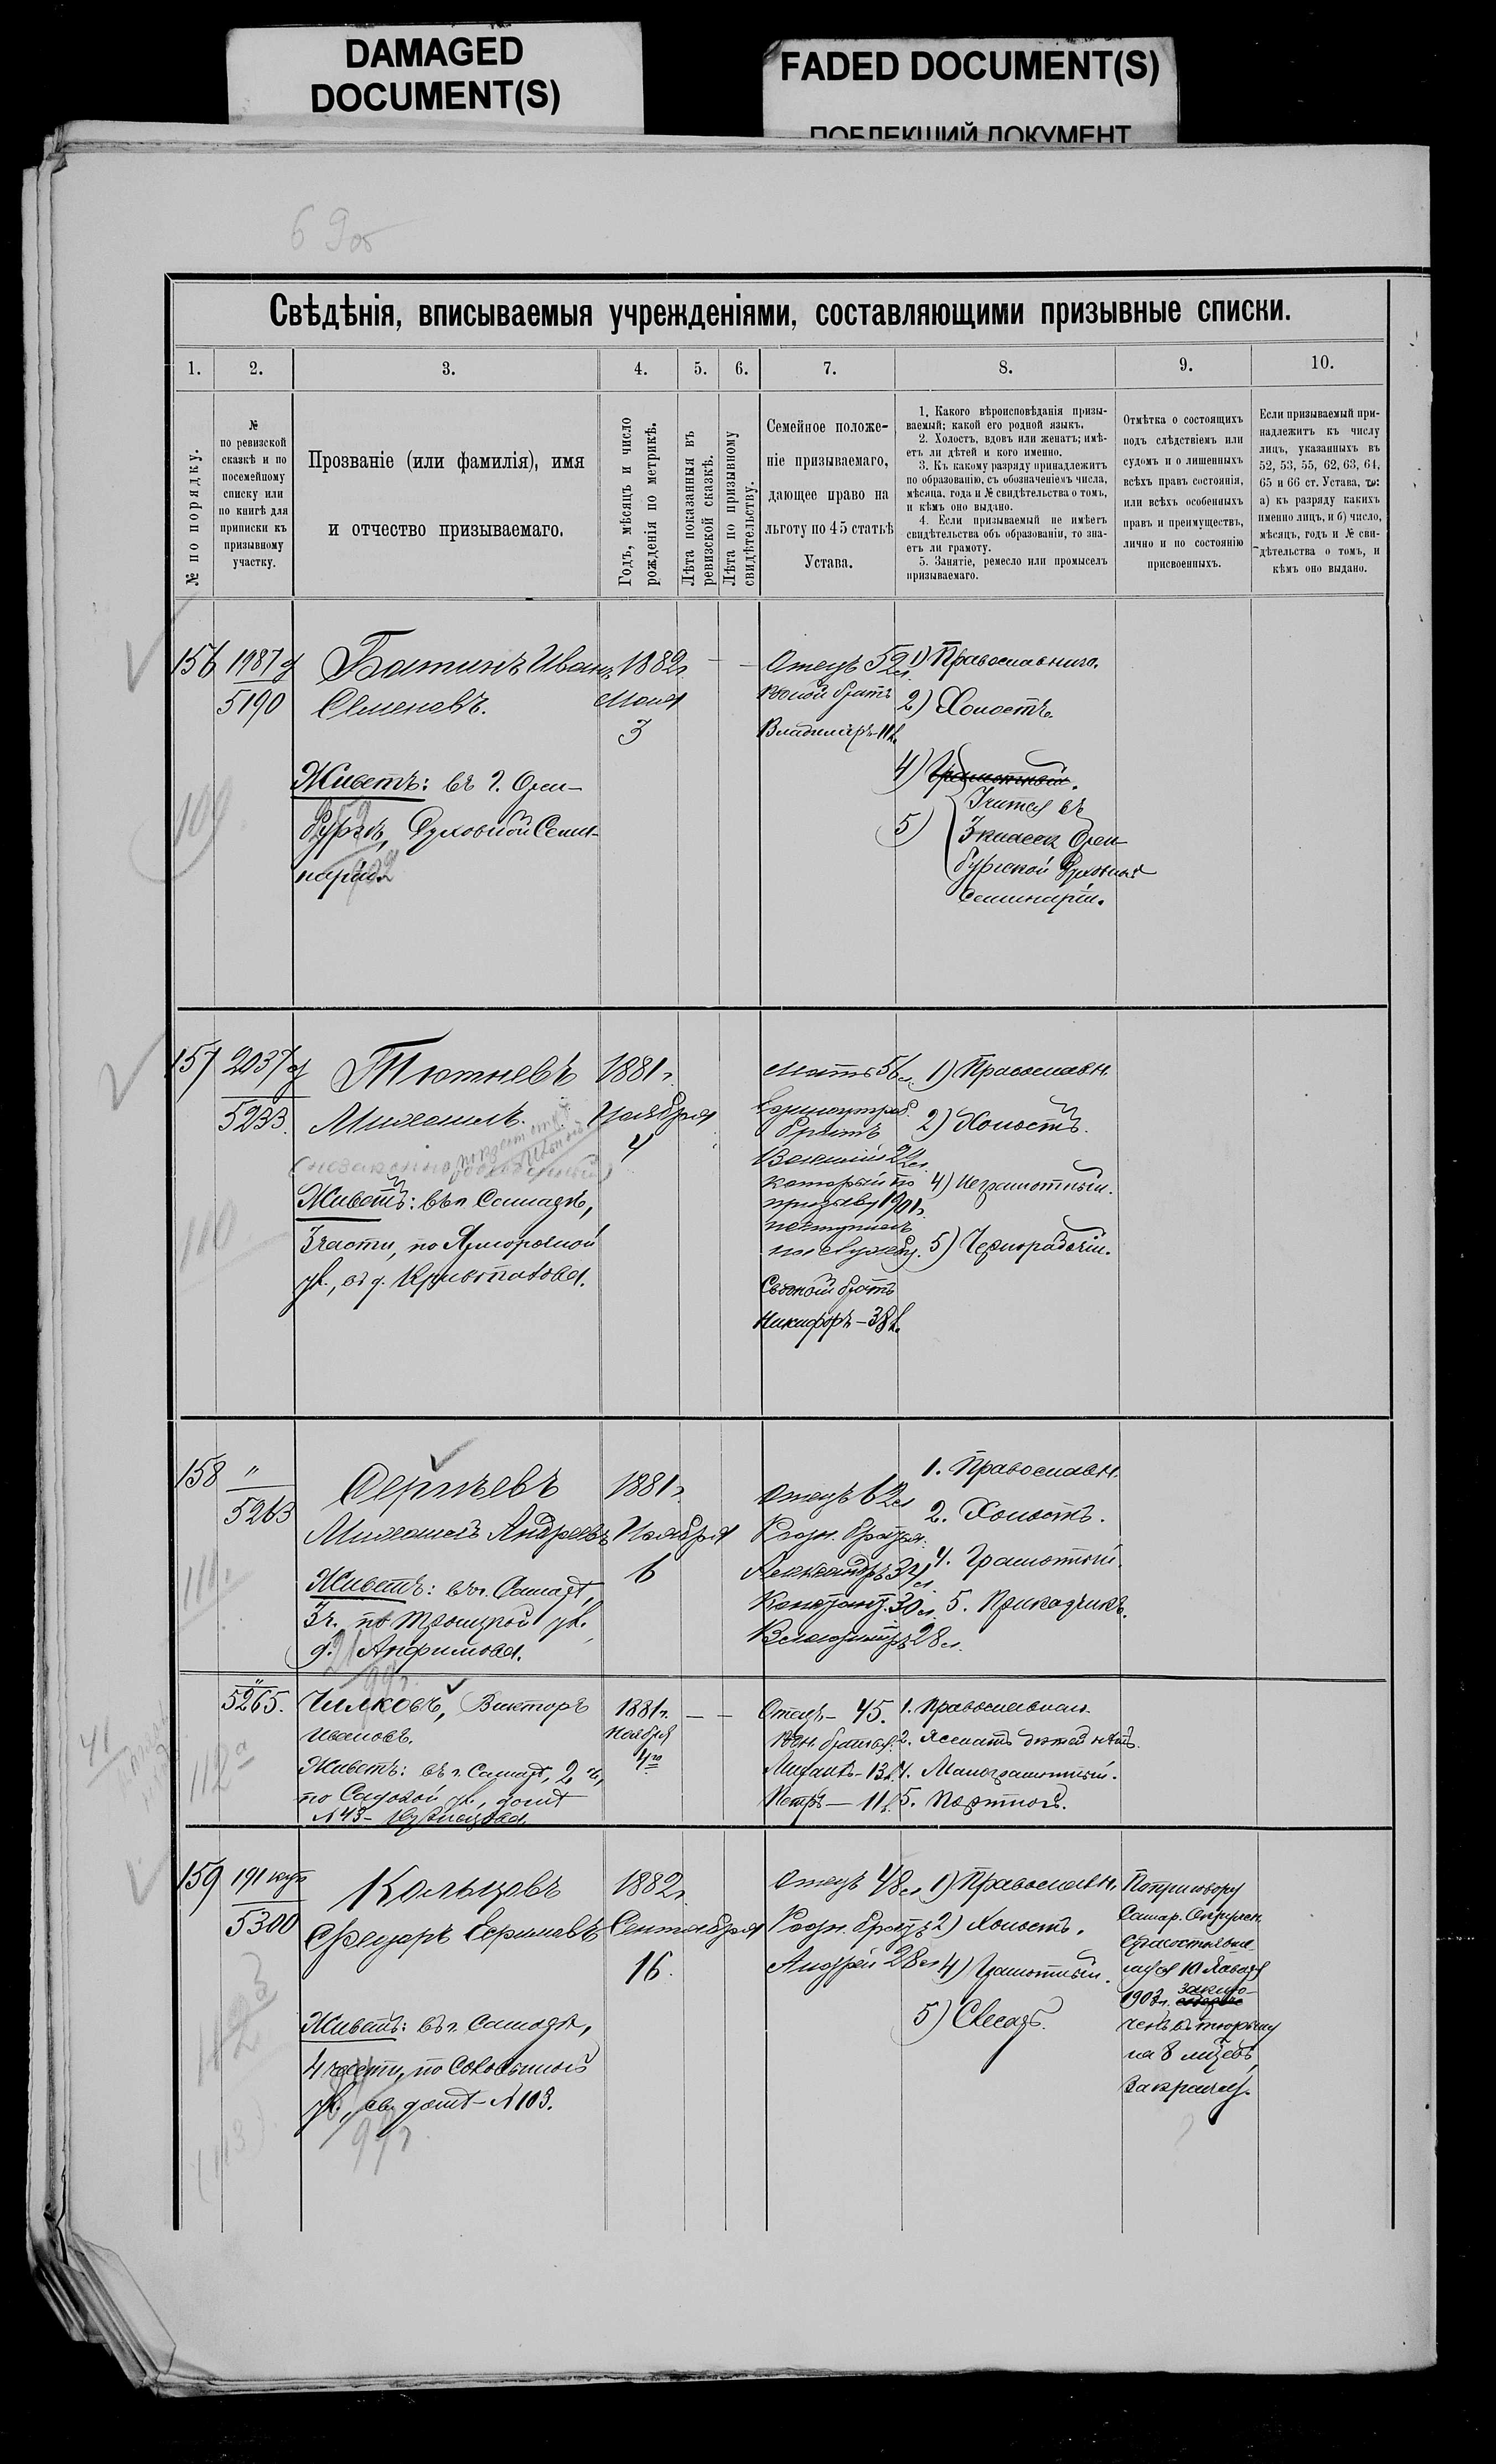 DAMAGED
DOCUMENT(S)
FADED DOCUMENT(S)
ПОБЛЕКШИЙ ДОКУМЕНТ
Свѣдѣнія, вписываемыя учрежденіями, составляющими призывные списки.
1.
2.
3.
4.
5.
6.
7.
8.
9.
10.
№ по порядку.
№
по ревизской
сказкѣ и по
посемейному
списку или
по книгѣ для
приписки къ
призывному
участку.
Прозваніе (или фамилія), имя
и отчество призываемаго.
Годъ, мѣсяцъ и число
рожденія по метрикѣ.
Лѣта показанныя въ
ревизской сказкѣ.
Лѣта по призывному
свидѣтельству.
Семейное положе-
ніе призываемаго,
дающее право на
льготу по 45 статьѣ
Устава.
1. Какого вѣроисповѣданія призы-
ваемый; какой его родной языкъ.
2. Холостъ, вдовъ или женатъ; имѣ-
етъ ли дѣтей и кого именно.
3. Къ какому разряду принадлежитъ
по образованію, съ обозначеніемъ числа,
мѣсяца, года и № свидѣтельства о томъ,
и кѣмъ оно выдано.
4. Если призываемый не имѣетъ
свидѣтельства объ образованіи, то зна-
етъ ли грамоту.
5. Занятіе, ремесло или промыселъ
призываемаго.
Отмѣтка о состоящихъ
подъ слѣдствіемъ или
судомъ и о лишенныхъ
всѣхъ правъ состоянія,
или всѣхъ особенныхъ
правъ и преимуществъ,
лично и по состоянію
присвоенныхъ.
Если призываемый при-
надлежитъ къ числу
лицъ, указанныхъ въ
52, 53, 55, 62, 63, 64,
65 и 66 ст. Устава, то:
а) къ разряду какихъ
именно лицъ, и б) число,
мѣсяцъ, годъ и № сви-
дѣтельства о томъ, и
кѣмъ оно выдано.
156
1987
5190
Батинъ Иванъ
Семеновъ.
Живетъ: въ г. Орен-
бургѣ, Духовной Семи-
наріи
109
1882 г.
Мая
3
Отецъ 52 л.
родной братъ
Владиміръ - 11 л.
1) Православнаго.
2) Холостъ.
4) Грамотный.
5) Учится въ
3 классѣ Орен-
бургской Духовной
Семинаріи.
157
2037
5233.
Тютневъ
Михаилъ.
(незаконнорожденный)
Живетъ: въ г. Самарѣ,
3 части, по Ярморочной
ул., въ д.
110
1881 г.
Ноября
4
Мать 56 л.
братъ
Василій 22 л.
который по
призыву 1901 г.
поступилъ
на службу.
Сводный братъ
Никифоръ - 38 л.
1) Православн.
2) Холостъ.
4) Неграмотный.
5) Чернорабочій.
158
"
5263
Сергѣевъ
Михаилъ Андреевъ
Живетъ: въ г. Самарѣ,
3 ч. по Троицкой ул.
д. Анфимова.
111.
1881 г.
Ноября
6
Отецъ 62 л.
Родн. братья:
Александръ 34 л.
Констант. 30 л.
Владиміръ 28 л.
1. Православн.
2. Холостъ.
4. Грамотный.
5. Прикащикъ.
"
5265.
Чилковъ, Викторъ
Ивановъ.
Живетъ: въ г. Самарѣ, 2 ч,
по Садовой ул., домъ
№ 43 - Кузнецова.
112а
1881 г.
Ноября
Отецъ - 45.
Родн. братья:
Михаилъ - 13 л.
Петръ - 11 л.
1. Православнаго.
2. Женатъ дѣтей нѣтъ.
4. Малограмотный.
5. Портной.
159
191
5300
Кольцовъ
Федоръ Ефимовъ
Живетъ: въ г. Самарѣ,
4 части, по Соловьиной
ул., св. домъ - № 103.
1882 г.
Сентября
16.
Отецъ 48 л.
Родн. братъ
Андрей 28 л.
1) Православн.
2) Холостъ.
4) Грамотный.
5) Слесарь.
По приговору
Самар. Окружн.
Суда
10 Января
1902 г. заклю-
ченъ въ тюрьму
на 8 мѣсяцевъ
за кражу.